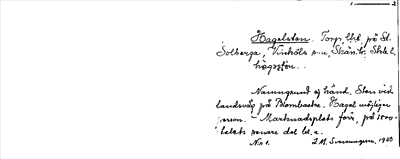 1 — 2
Hagelsten. Torp, lht. på St.
Solberga, Vinköls s:n, Skån. hr. Skbl. l.
högsten..
Namngrund ej känd. Sten vid
landsväg på Blombacke. Hagel möjligen
person. Marknadsplats förr, på 1800-
talets senare del bl. a.
N:r 1. 1930